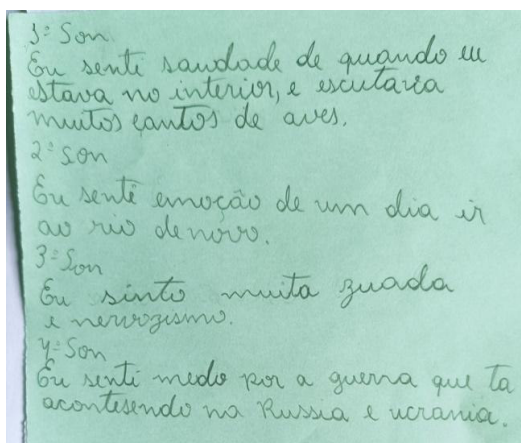 1º Son
Eu senti saudade de quando eu
estava no interior, e escutava
muitos cantos de aves.
2º son
Eu senti emoção de um dia ir
ao rio denovo.
3º Son
Eu sinto muita zuada
e nervozismo.
4º Son
Eu senti medo por a guerra que ta
acontesendo na Russia e ucrania.